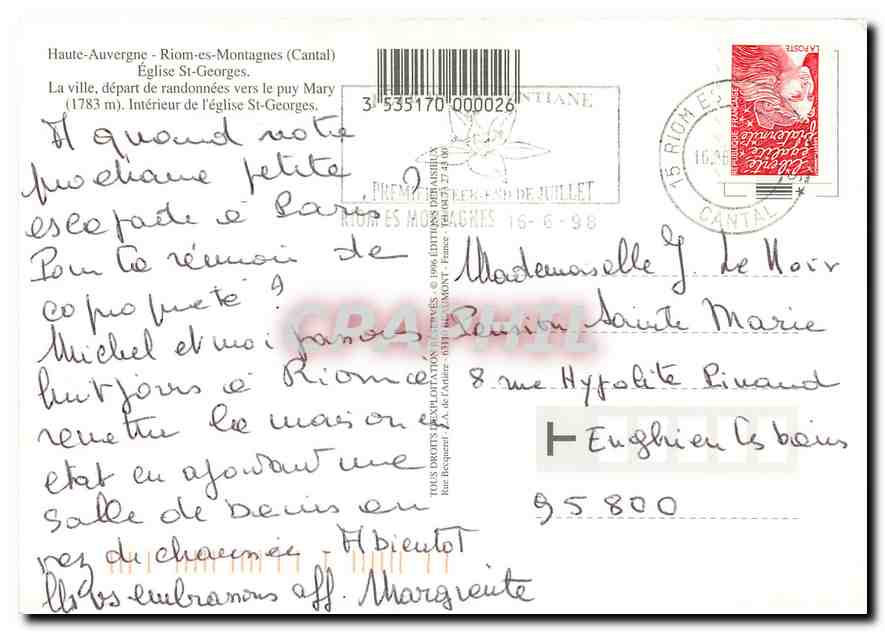 Haute-Auvergne - Riom-es-Montagnes (Cantal)
Église St-Georges.
La ville, départ de randonnées vers le puy Mary
(1783 m). Intérieur de l'église St-Georges.
3 535170 000026
PREMIER WEEK-END DE JUILLET
RIOM ES MONTAGNES 16-6-98
15 RIOM ES
CANTAL
LA POSTE
RÉPUBLIQUE FRANÇAISE
Liberté
égalité
fraternité
A quand votre
prochaine petite
escapade à Paris ?
Pour la réunion de
copropriété ?
Michel et moi passons
huit jours à Riom à
remettre la maison en
état en ajoutant une
salle de bains en
rez de chaussée - A Bientôt
Ns vs embrassons aff. Marguerite
TOUS DROITS D'EXPLOITATION RÉSERVÉS - © 1996 ÉDITIONS DEBAISIEUX
Rue Becquerel - Z.A. de l'Artière - 63110 BEAUMONT - France - Tél. 04 73 27 43 00
CPAPHIL
Mademoiselle J. Le Noir
Pension Sainte Marie
8 rue Hypolite Pinaud
Enghien les bains
95800